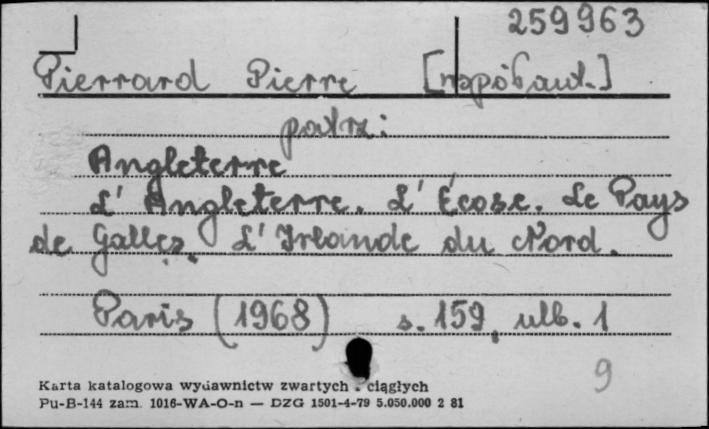 259963
Pierrard Pierre [współaut.]
patrz:
Angleterre
L' Angleterre. L' Écose. Le Pays
de Galles. L' Irlande du Nord.
Paris (1968) s. 159, ulb. 1
9
Karta katalogowa wydawnictw zwartych i ciągłych
Pu-B-144 zam. 1016-WA-O-n — DZG 1501-4-79 5.050.000 2 81